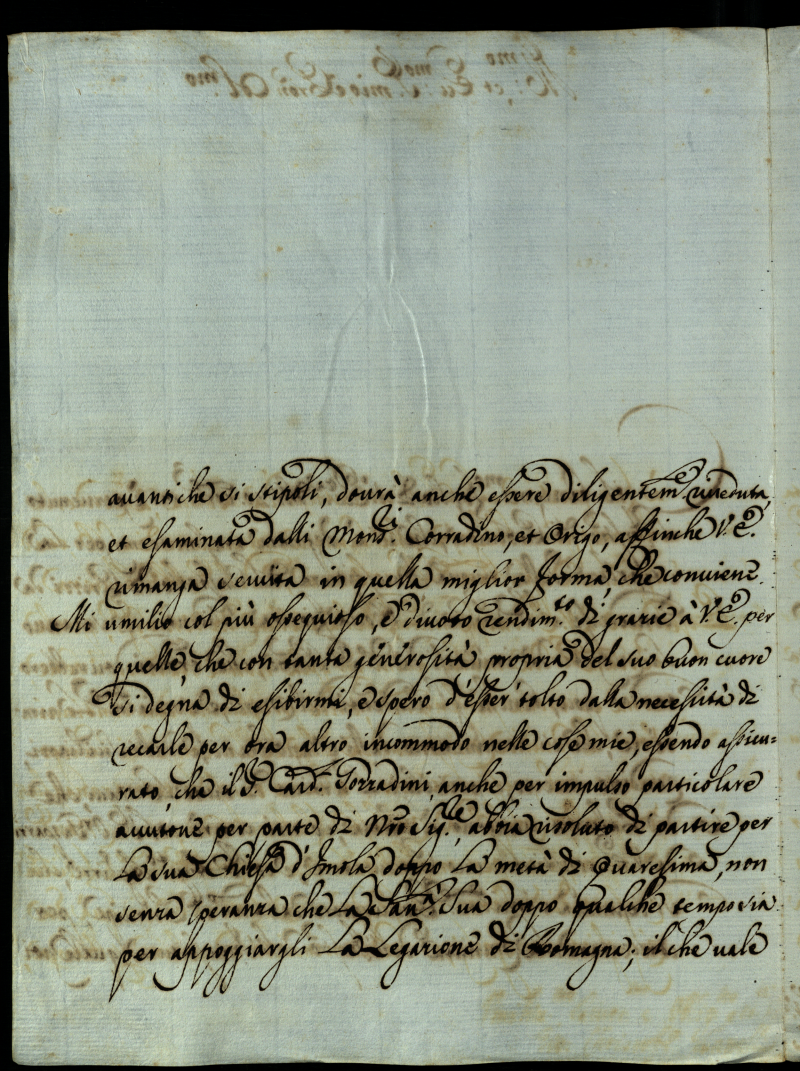 avanti che si stipoli, dovrà anche essere diligentem.e riveduta,
et esaminata dalli Mons.ri Corradino, et Origo, affinche V. E.
rimanga servita in quella miglior forma, che conviene.
Mi umilio col più ossequioso, e divoto rendim.to di grazie à V. E. per
quelle, che con tanta generosità propria del suo buon cuore
si degna di esibirmi, e spero d'esser tolto dalla necessità di
recarle per ora altro incommodo nelle cose mie, essendo assicu=
rato, che il S.r Card.l Gozzadini, anche per impulso particolare
avutone per parte di Nro Sig.re, abbia risoluto di partire per
La sua Chiesa d'Imola doppo La metà di Quaresima, non
senza speranza che La San.tà Sua doppo qualche tempo sia
per appoggiargli La Legazione di Romagna; il che vale